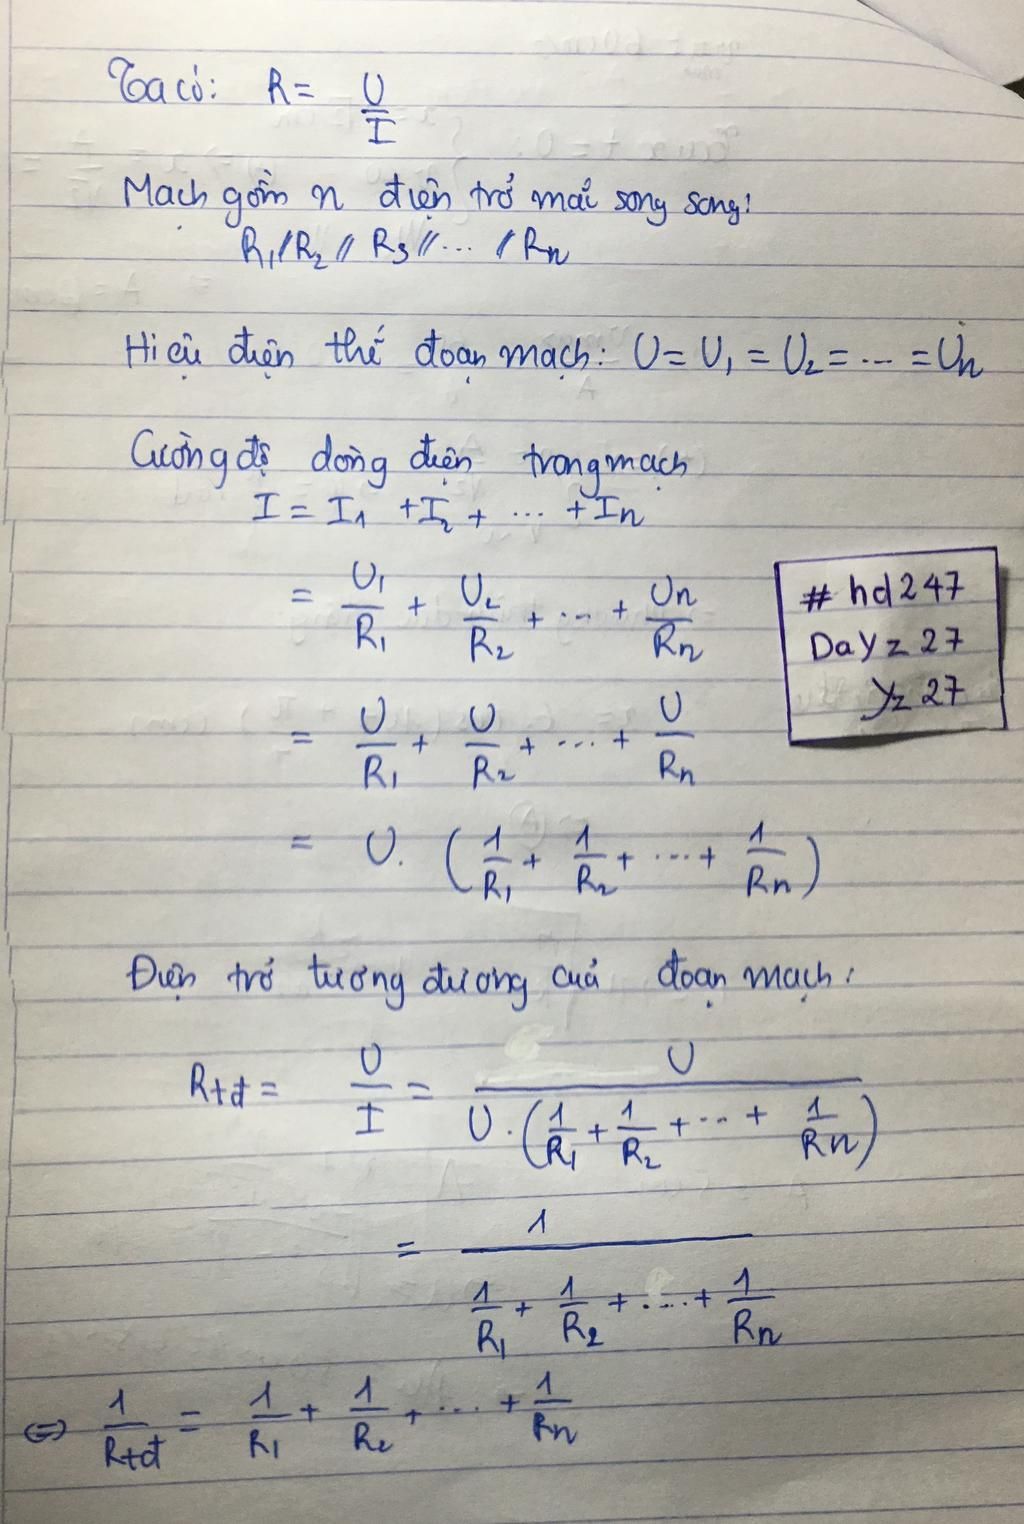 Ta có: R = U/I
Mạch gồm n điện trở mắc song song:
R₁//R₂//R₃//...//Rn
Hiệu điện thế đoạn mạch: U = U₁ = U₂ = ... = Un
Cường độ dòng điện trong mạch
I = I₁ + I₂ + ... + In
= U₁/R₁ + U₂/R₂ + ... + Un/Rn
= U/R₁ + U/R₂ + ... + U/Rn
= U. (1/R₁ + 1/R₂ + ... + 1/Rn)
# hd247
Dayz 27
yz 27
Điện trở tương đương của đoạn mạch:
Rtđ = U/I = U/(U.(1/R₁ + 1/R₂ + ... + 1/Rn))
= 1/(1/R₁ + 1/R₂ + ... + 1/Rn)
⇔ 1/Rtđ = 1/R₁ + 1/R₂ + ... + 1/Rn